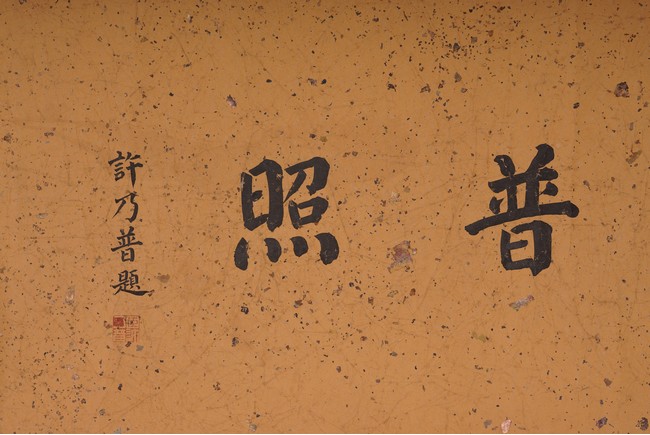 普照
許乃普題